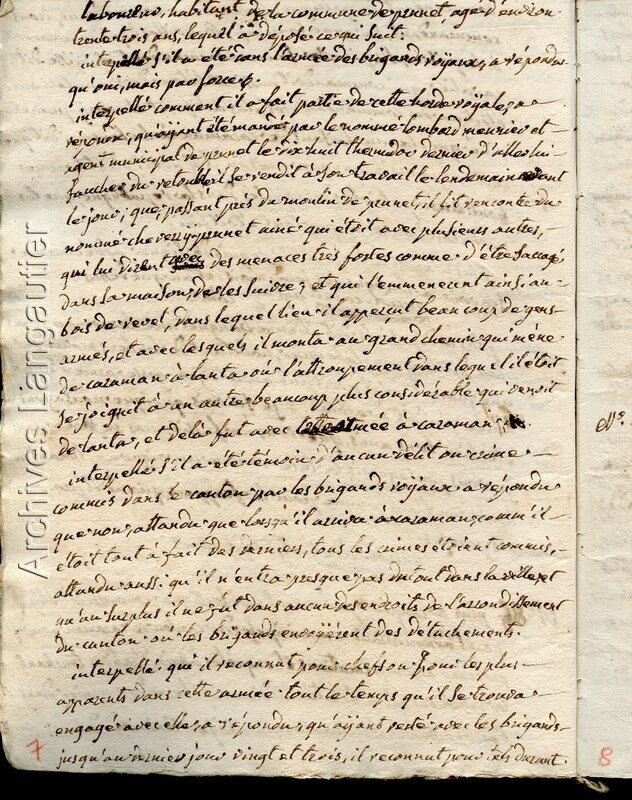 laboureur, habitant de la commune de prunet agé d'environ
trente trois ans, lequel a déposé ce qui suit:
interpellé s'il a été dans l'armée des brigands royaux, a répondu
qu'oui, mais par force.
interpellé comment il a fait partie de cette horde royale, a
répondu, qu'ayant été mandé par le nommé lombard meunier et
agent municipal de prunet le dix huit thermidor dernier d'aller lui
faucher du retouble il se rendit à son travail le lendemain avant
le jour, que, passant près du moulin de prunet, il fit rencontre du
nommé chevery prunet ainé qui étoit avec plusieurs autres,
qui lui dirent avec des menaces très fortes comme d'être saccagé
dans sa maison, de les suivre, et qui l'emmenerent ainsi au
bois de revel, dans lequel lieu il apperçut beaucoup de gens
armés, et avec lesquels il monta au grand chemin qui mène
de caraman à lanta où l'attroupement dans lequel il étoit
se joignit à un autre beaucoup plus considérable qui venoit
de lanta, et delà fut avec l'armée à caraman
interpellé s'il a été témoin d'aucun délit ou crime
commis dans le canton par les brigands royaux a répondu
que non, attandu que lorsqu'il arriva à caraman, comm'il
étoit tout à fait des derniers, tous les crimes étoient commis,
attandu aussi qu'il n'entra presque pas du tout dans la ville, et
qu'au surplus il ne fut dans aucun des endroits de l'arrondissement
du canton où les brigands envoyèrent des détachements.
interpellé qui il reconnut pour chefs ou pour les plus
apparents dans cette armée tout le temps qu'il se trouva
engagé avec elle, a répondu, qu'ayant resté avec les brigands
jusqu'au dernier jour vingt et trois, il reconnut pour tels durant
7
8
Archives Langautier